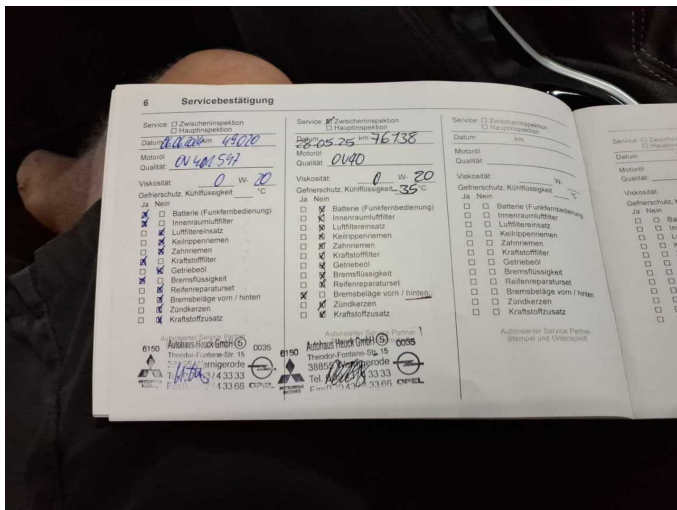 6 Servicebestätigung
Service: □ Zwischeninspektion
□ Hauptinspektion
Datum km 49.020
Motoröl
Qualität: OV 401 547
Viskosität: 0 W- 20
Gefrierschutz, Kühlflüssigkeit °C
Ja Nein
☒ □ Batterie (Funkfernbedienung)
☒ □ Innenraumluftfilter
□ ☒ Luftfiltereinsatz
□ ☒ Keilrippenriemen
□ ☒ Zahnriemen
☒ □ Kraftstofffilter
□ ☒ Getriebeöl
☒ □ Bremsflüssigkeit
□ ☒ Reifenreparaturset
□ ☒ Bremsbeläge vorn / hinten
□ ☒ Zündkerzen
□ ☒ Kraftstoffzusatz
6150 Autohaus Heuck GmbH 5 0035
Theodor-Fontane-Str. 15
Wernigerode
4 33 33
4 33 66 OPEL
MITSUBISHI
MOTORS
Service: ☒ Zwischeninspektion
□ Hauptinspektion
Datum 28.05.25 km 76738
Motoröl
Qualität: OV40
Viskosität: 0 W- 20
Gefrierschutz, Kühlflüssigkeit -35 °C
Ja Nein
□ ☒ Batterie (Funkfernbedienung)
□ ☒ Innenraumluftfilter
□ ☒ Luftfiltereinsatz
□ ☒ Keilrippenriemen
□ ☒ Zahnriemen
□ ☒ Kraftstofffilter
□ ☒ Getriebeöl
□ ☒ Bremsflüssigkeit
□ ☒ Reifenreparaturset
☒ □ Bremsbeläge vorn / hinten
□ ☒ Zündkerzen
□ ☒ Kraftstoffzusatz
Autorisierter Service Partner
6150 Autohaus Heuck GmbH 5 0035
Theodor-Fontane-Str. 15
38855 Wernigerode
Tel. 33 33
33 66 OPEL
MITSUBISHI
MOTORS
Service: □ Zwischeninspektion
□ Hauptinspektion
Datum km
Motoröl
Qualität:
Viskosität: W-
Gefrierschutz, Kühlflüssigkeit °C
Ja Nein
□ □ Batterie (Funkfernbedienung)
□ □ Innenraumluftfilter
□ □ Luftfiltereinsatz
□ □ Keilrippenriemen
□ □ Zahnriemen
□ □ Kraftstofffilter
□ □ Getriebeöl
□ □ Bremsflüssigkeit
□ □ Reifenreparaturset
□ □ Bremsbeläge vorn / hinten
□ □ Zündkerzen
□ □ Kraftstoffzusatz
Autorisierter Service Partner
Stempel und Unterschrift
Service:
Datum
Motoröl
Qualität:
Viskosität:
Ja Nein